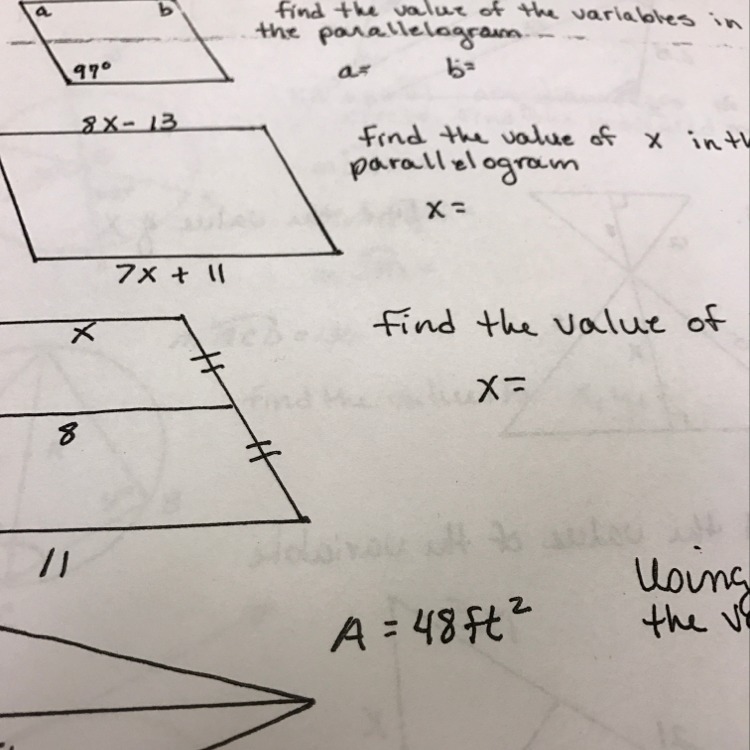 a b find the value of the variables in
the parallelogram
97° a= b=
8x - 13
find the value of x in
parallelogram
x=
7x + 11
find the value of
x
x=
8
11
Using
A = 48ft²
the